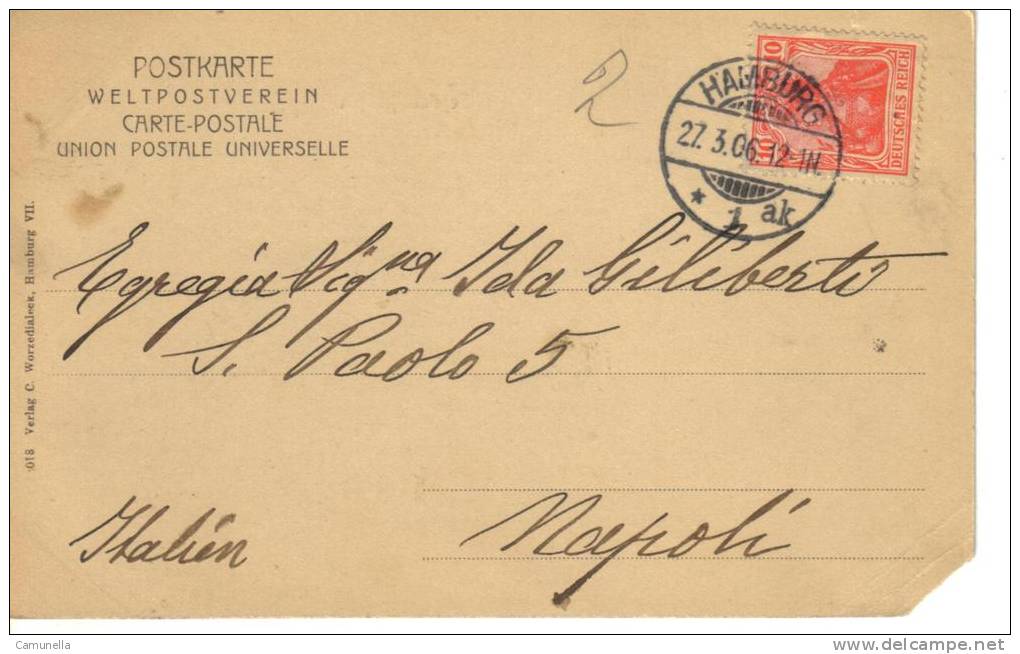 POSTKARTE
WELTPOSTVEREIN
CARTE-POSTALE
UNION POSTALE UNIVERSELLE
2
HAMBURG
27.3.06.12-1N.
* 1 ak
10
10
DEUTSCHES REICH
Egregia Sigⁿᵃ Ida Giliberti
S. Paolo 5
Napoli
Italien
018 Verlag C. Worzedialeck, Hamburg VII.
Camunella
www.delcampe.net